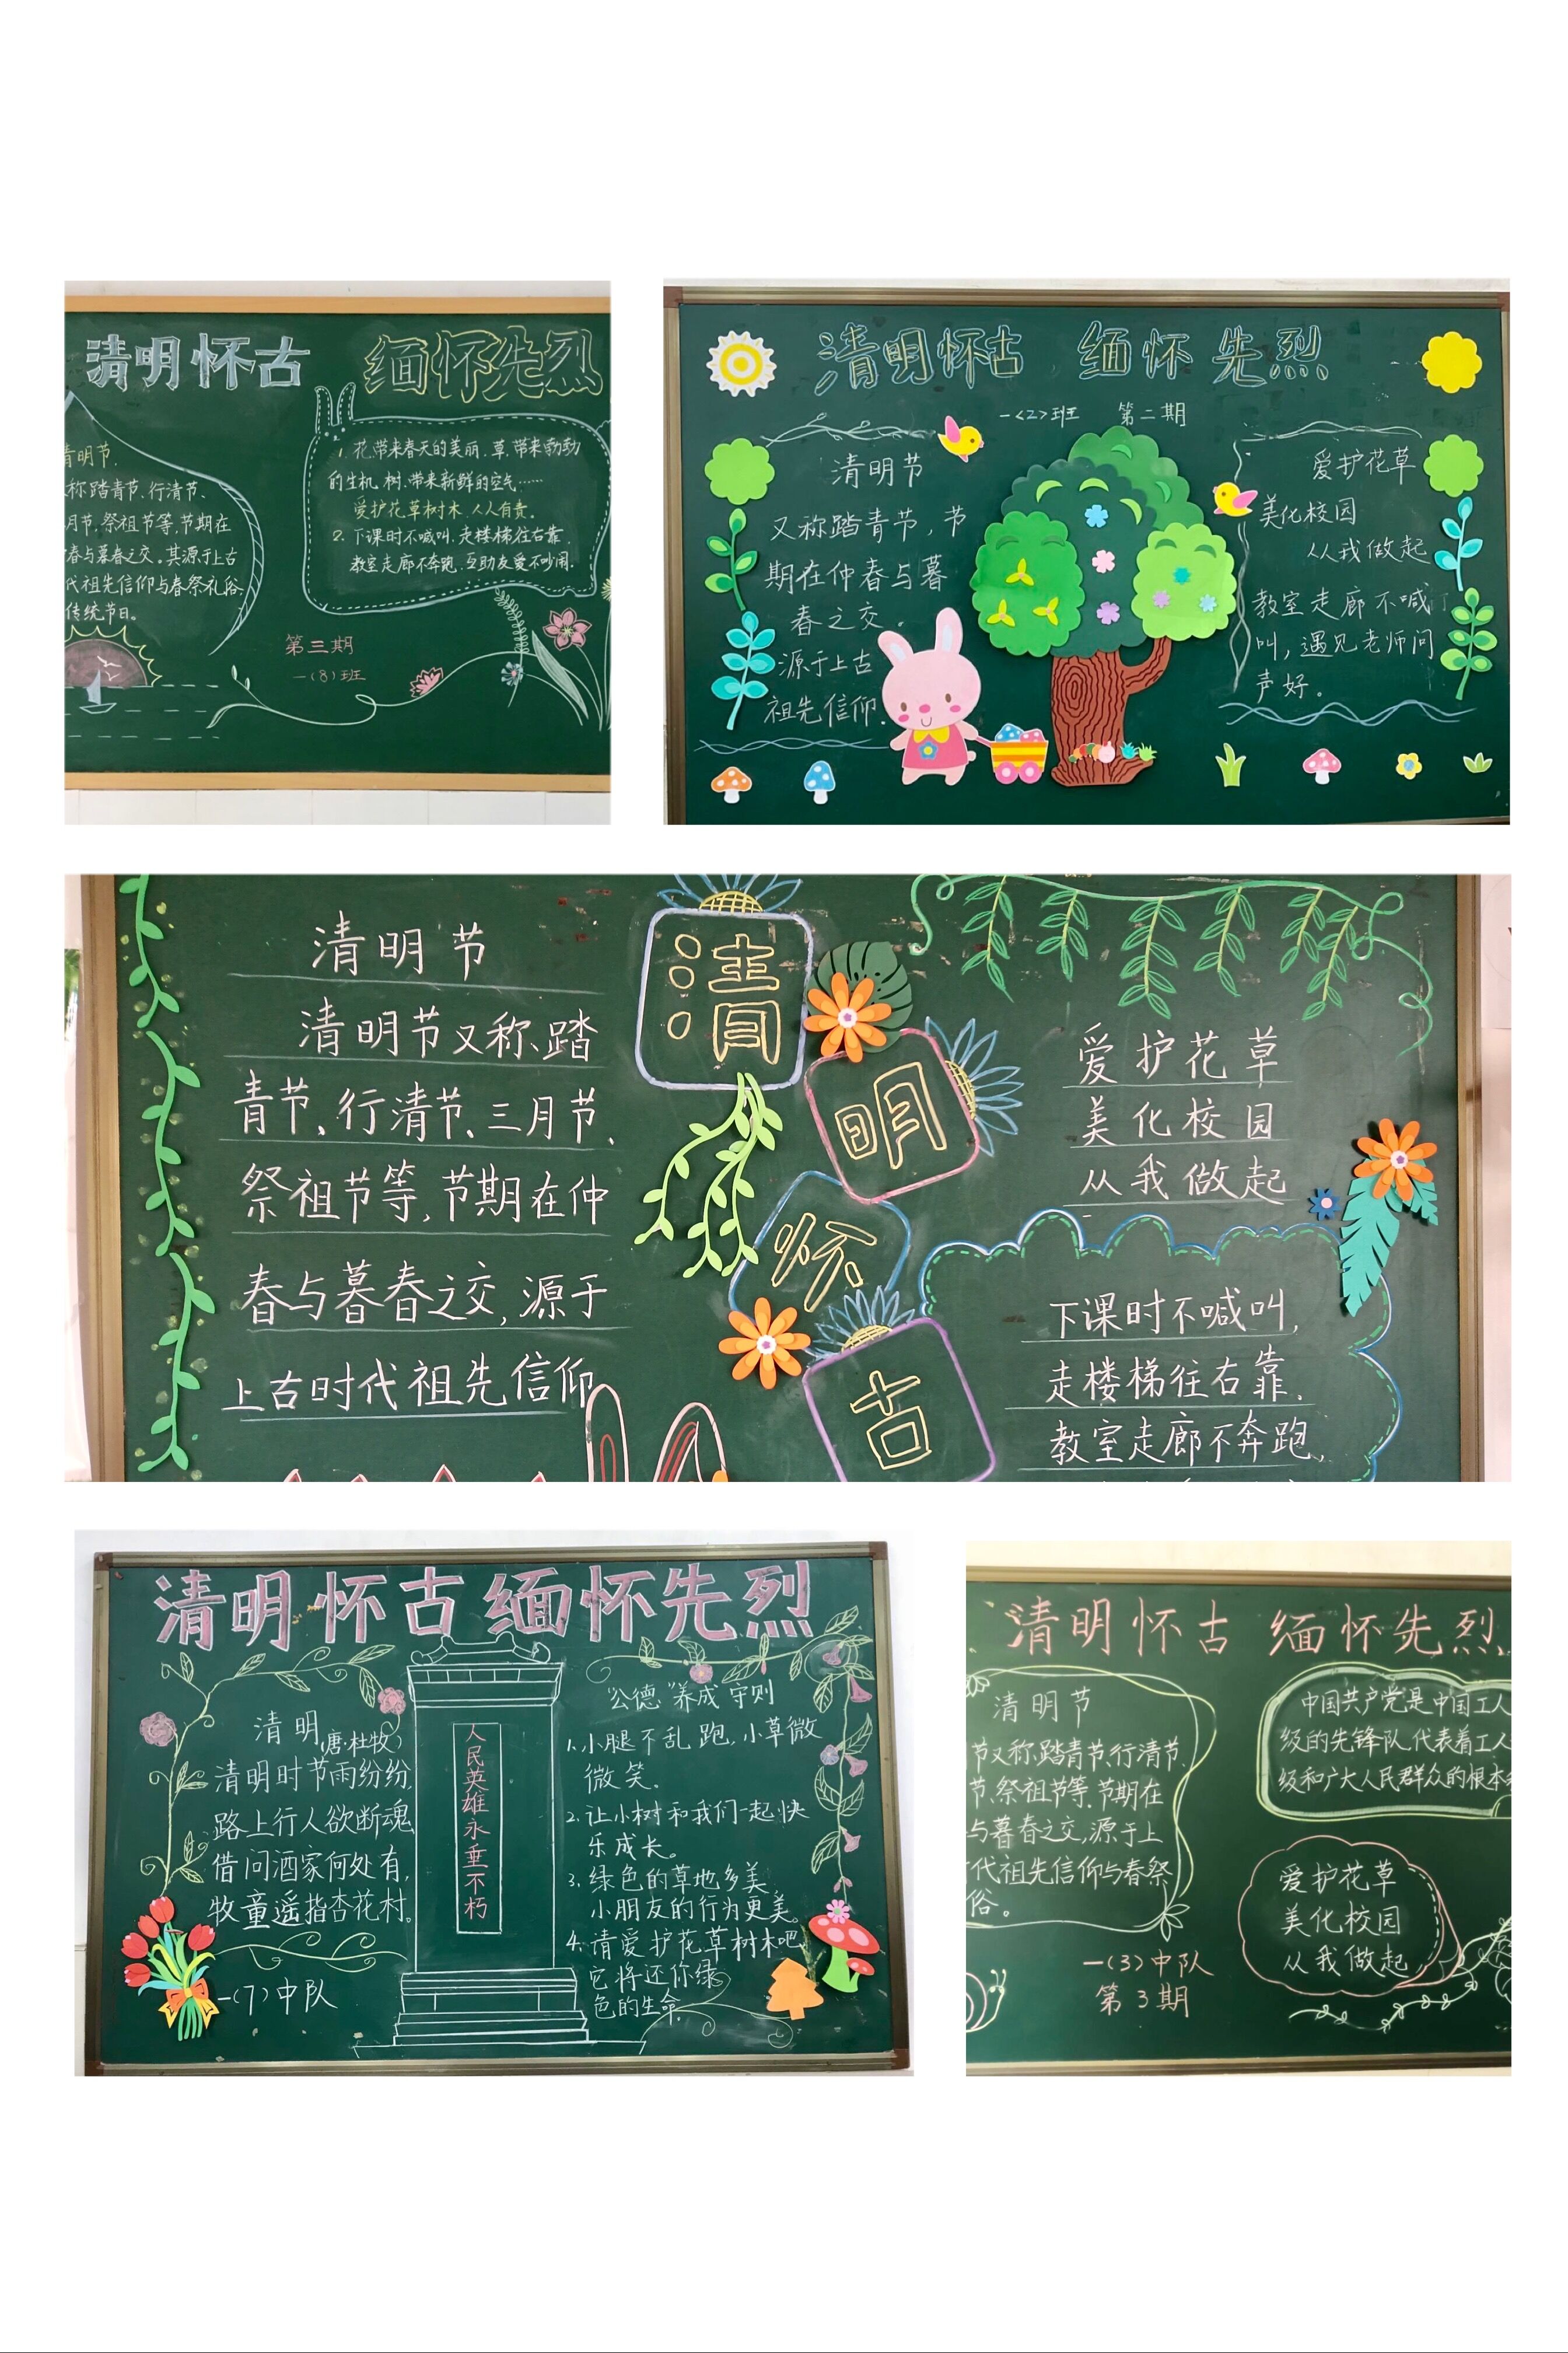 清明怀古 缅怀先烈
青明节.
称踏青节、行清节、
月节、祭祖节等,节期在
春与暮春之交。其源于上古
代祖先信仰与春祭礼俗
传统节日。
1. 花,带来春天的美丽.草,带来勃勃
的生机.树,带来新鲜的空气……
爱护花草树木,人人有责.
2. 下课时不喊叫,走楼梯往右靠,
教室走廊不奔跑,互助友爱不吵闹.
第三期
一(8)班
清明怀古 缅怀先烈
一<2>班 第二期
清明节
又称踏青节,节
期在仲春与暮
春之交。
源于上古
祖先信仰.
爱护花草
美化校园
从我做起
教室走廊不喊
叫,遇见老师问
声好。
清明节
清明节又称踏
青节、行清节、三月节、
祭祖节等,节期在仲
春与暮春之交,源于
上古时代祖先信仰
清
明
怀
古
爱护花草
美化校园
从我做起
下课时不喊叫,
走楼梯往右靠.
教室走廊不奔跑,
清明怀古缅怀先烈
清明(唐·杜牧)
清明时节雨纷纷,
路上行人欲断魂
借问酒家何处有,
牧童遥指杏花村。
一(7)中队
人民英雄永垂不朽
"公德"养成守则
1.小腿不乱跑,小草微
微笑。
2.让小树和我们一起快
乐成长。
3.绿色的草地多美,
小朋友的行为更美。
4.请爱护花草树木吧,
它将还你绿
色的生命.
清明怀古 缅怀先烈
清明节
节又称踏青节、行清节、
节、祭祖节等.节期在
与暮春之交,源于上
代祖先信仰与春祭
俗。
一(3)中队
第3期
中国共产党是中国工人
级的先锋队,代表着工人
级和广大人民群众的根本
爱护花草
美化校园
从我做起